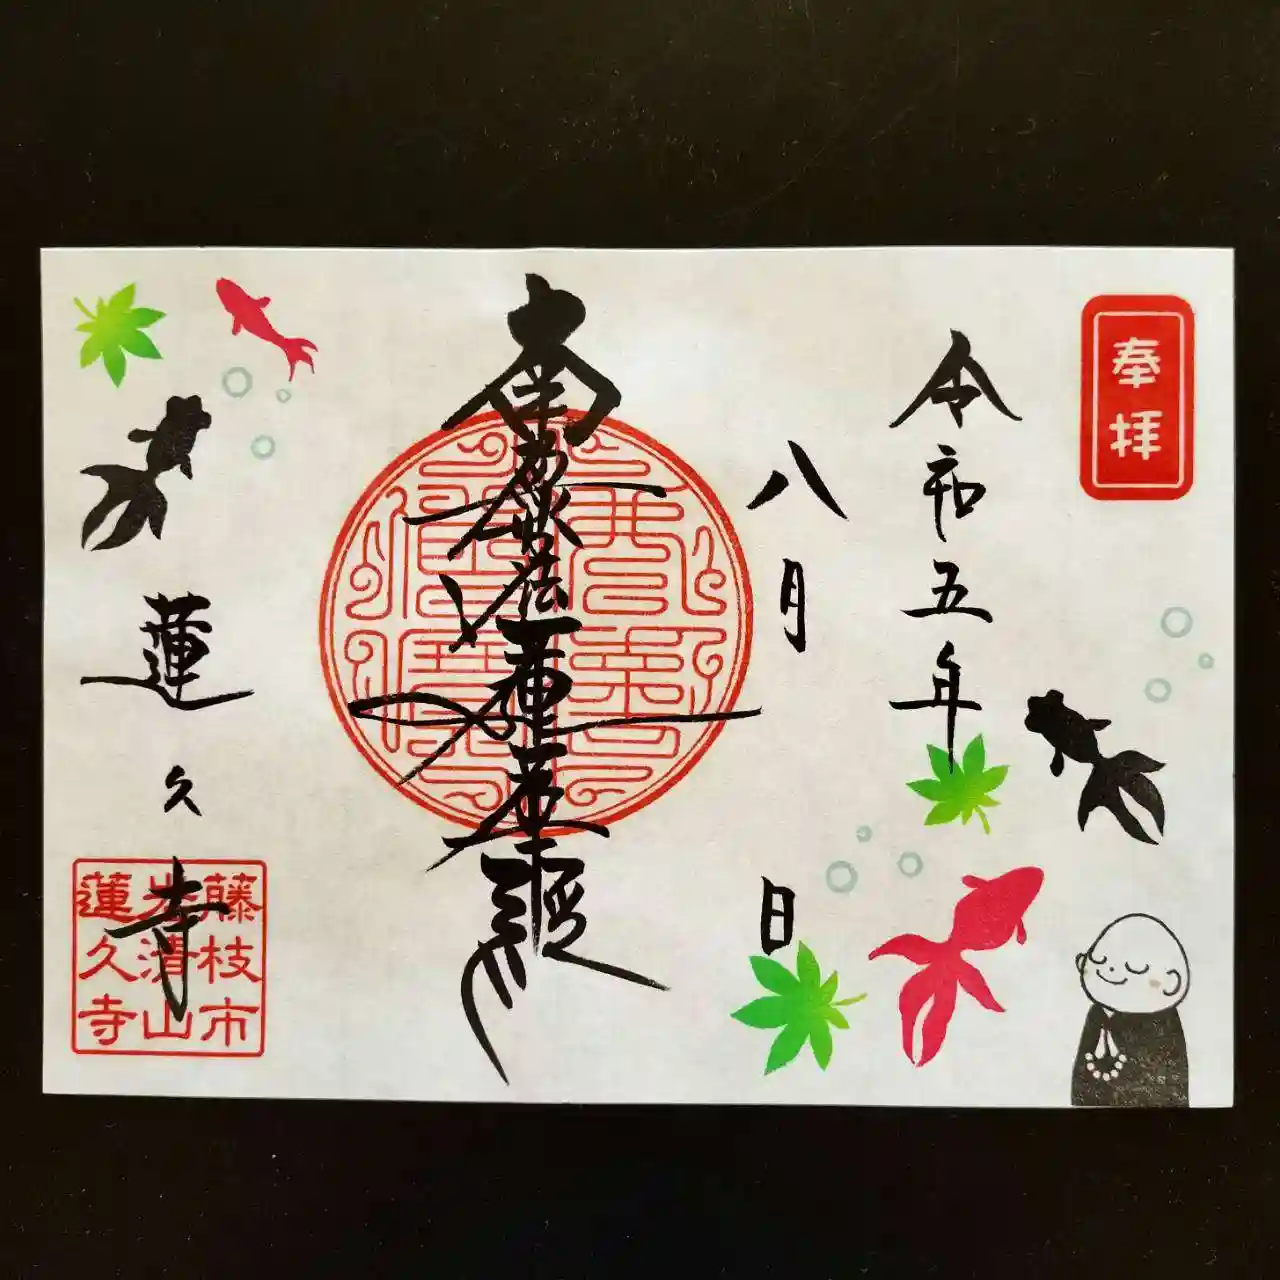 奉拝
令和五年
八月 日
南無妙法蓮華経
蓮久寺
藤枝市
岩清山
蓮久寺